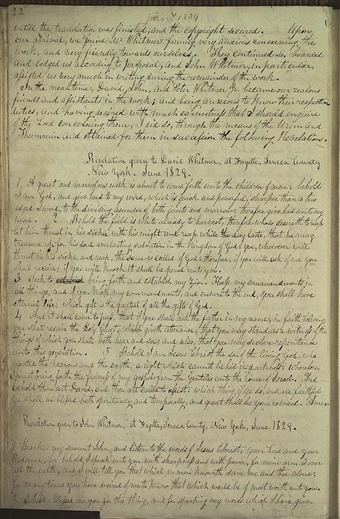 22 1829
untill the translation was finished, and the copyright secured. Upon
our arrival, we found Mr Whitmer's family very anxious concerning the
work, and very friendly towards ourselves. They continued so, boarded
and lodged us according to proposal, and John Whitmer, in particular,
assisted us very much in writing during the remainder of the work.
In the mean time, David, John, and Peter Whitmer Jr became our zealous
friends and assistants in the work; and being anxious to know their respective
duties, and having desired with much earnestness that I should enquire
of the Lord concerning them, I did so, through the means of the Urim and
Thummim and obtained for them in succession the following Revelations.
Revelation given to David Whitmer, at Fayette, Seneca County
New York. June 1829.
1, A great and marvelous work is about to come forth unto the children of men: behold
I am God, and give heed to my word, which is quick and powerful, sharper than a two
edged sword, to the dividing asunder of both joints and marrow: therefore give heed unto my
word. 2 Behold the field is white already to harvest, therefore whoso desireth to reap
let him thrust in his sickle with his might and reap while the day lasts, that he may
treasure up for his soul everlasting salvation in the Kingdom of God: yea, whosoever will
thrust in his sickle and reap, the same is called of God: therefore, if you will ask of me you
shall receive; if you will knock it shall be opened unto you.
3 Seek to bring forth and establish my Zion. Keep my commandments in
all things; and if you keep my commandments, and endure to the end, you shall have
eternal life; which gift is the greatest of all the gifts of God.
4 And it shall come to pass, that if you shall ask the father in my name, in faith believing,
you shall receive the Holy Ghost, which giveth utterance, that you may stand as a witness of the
things of which you shall both hear and see; and also, that you may declare repentance
unto this generation. 5 Behold I am Jesus Christ the son of the living God, who
created the heavens and the earth; a light which cannot be hid in darkness: wherefore,
I must bring forth the fulness of my gospel from the Gentiles unto the house of Israel. And
behold thou art David, and thou art called to assist: which thing if ye do, and are faithful
ye shall be blessed both spiritually and temporally, and great shall be your reward. Amen.
Revelation given to John Whitmer, at Fayette, Seneca County, New York, June 1829.
1 Hearken my servant John, and listen to the words of Jesus Christ, your Lord and your
Redeemer, for behold I speak unto you with sharpness and with power, for mine arm is over
all the earth, and I will tell you that which no man knoweth save me and thee alone:
for many times you have desired of me to know that which would be of most worth unto you.
2 Behold, blessed are you for this thing, and for speaking my words which I have given